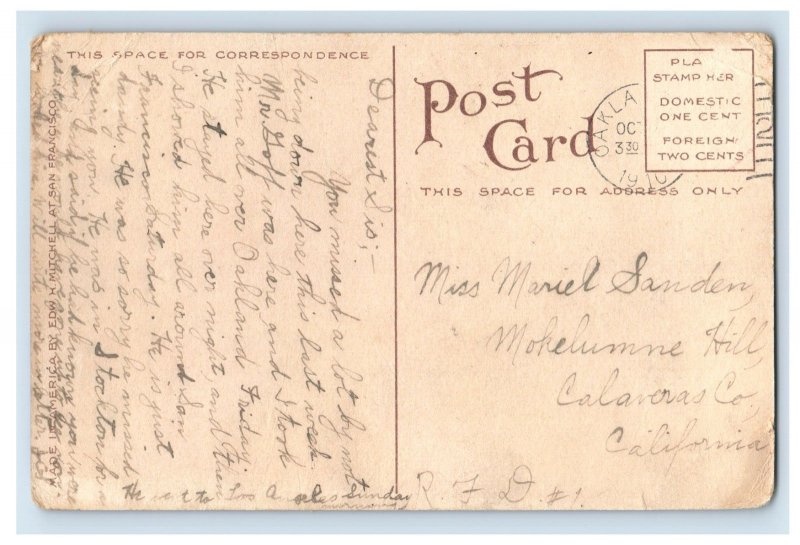 THIS SPACE FOR CORRESPONDENCE
Post
Card
THIS SPACE FOR ADDRESS ONLY
PLA
STAMP HER
DOMESTIC
ONE CENT
FOREIGN
TWO CENTS
OAKLA
OCT
3 30
1910
MADE IN AMERICA BY EDW. H. MITCHELL AT SAN FRANCISCO
Dearest Sis;-
You missed a lot by not
being down here this last week.
Mr. Goff was here and I took
him all over Oakland Friday.
He stayed here over night, and then
I showed him all around San
Francisco Saturday. He is just
dandy. He was so sorry he missed
seeing you. He was in Stockton for a
day and said if he had known you were
He went to Los Angeles Sunday
morning
Miss Mariel Sanden,
Mokelumne Hill,
Calaveras Co,
California
R. F. D. #1